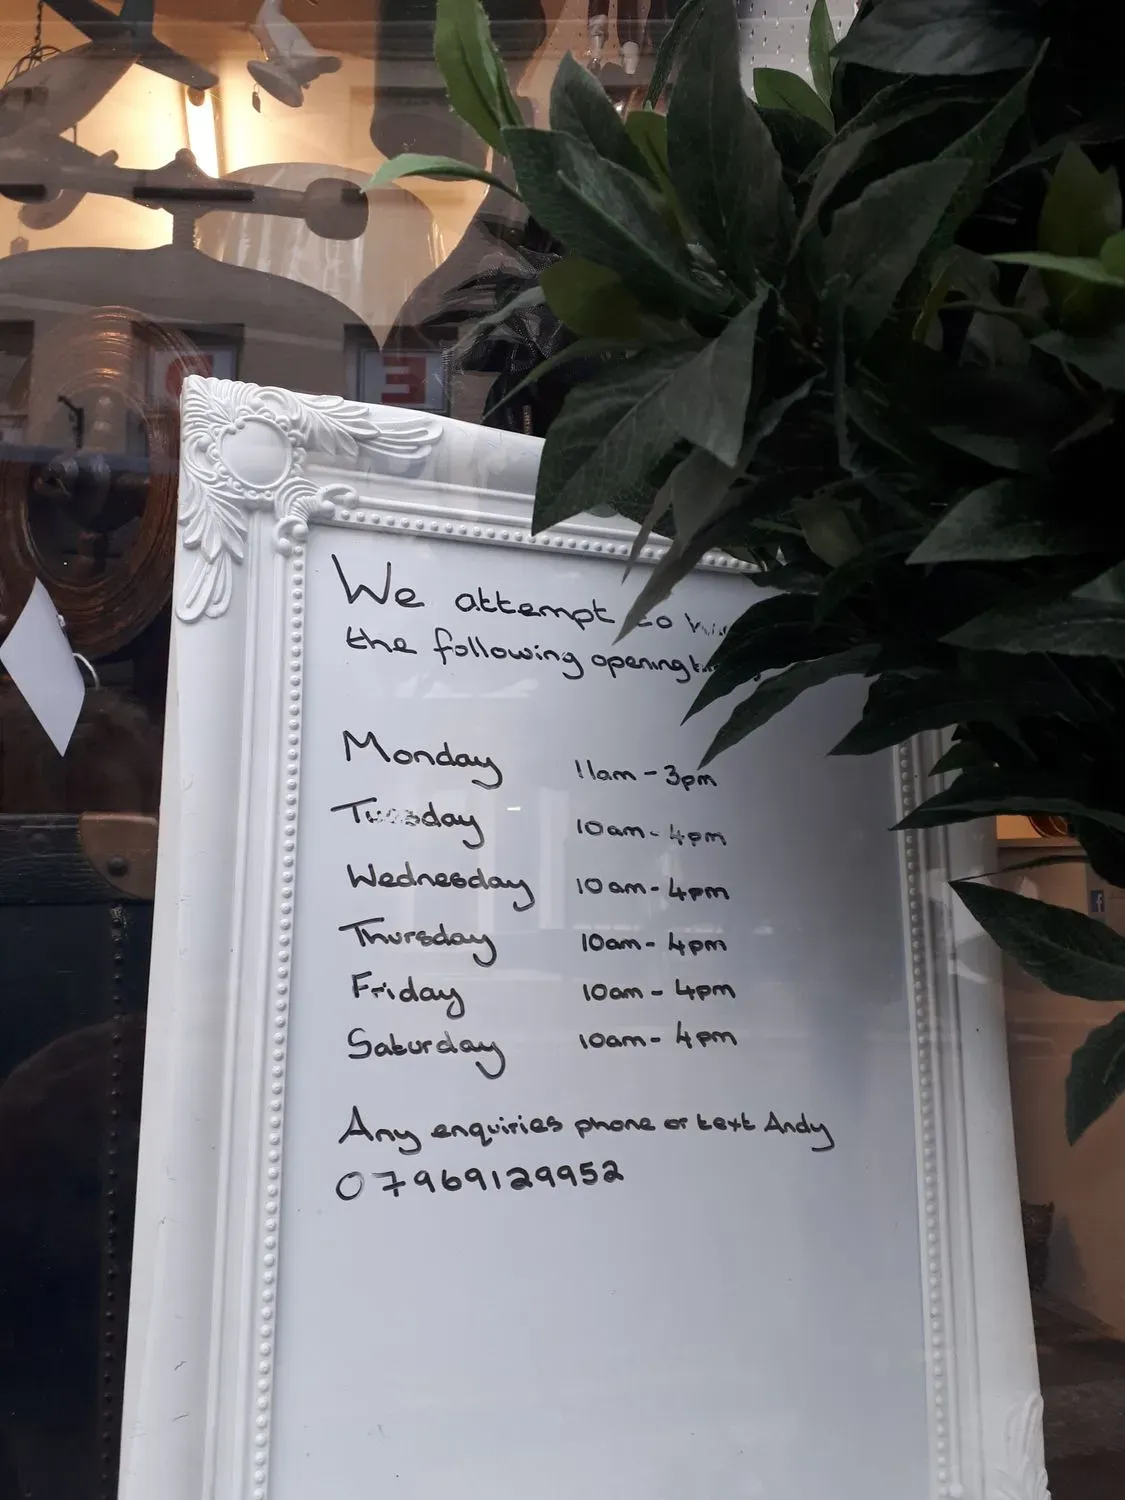 We attempt to
the following opening
Monday 11am - 3pm
Tuesday 10am - 4pm
Wednesday 10am - 4pm
Thursday 10am - 4pm
Friday 10am - 4pm
Saturday 10am - 4pm
Any enquiries phone or text Andy
07969129952